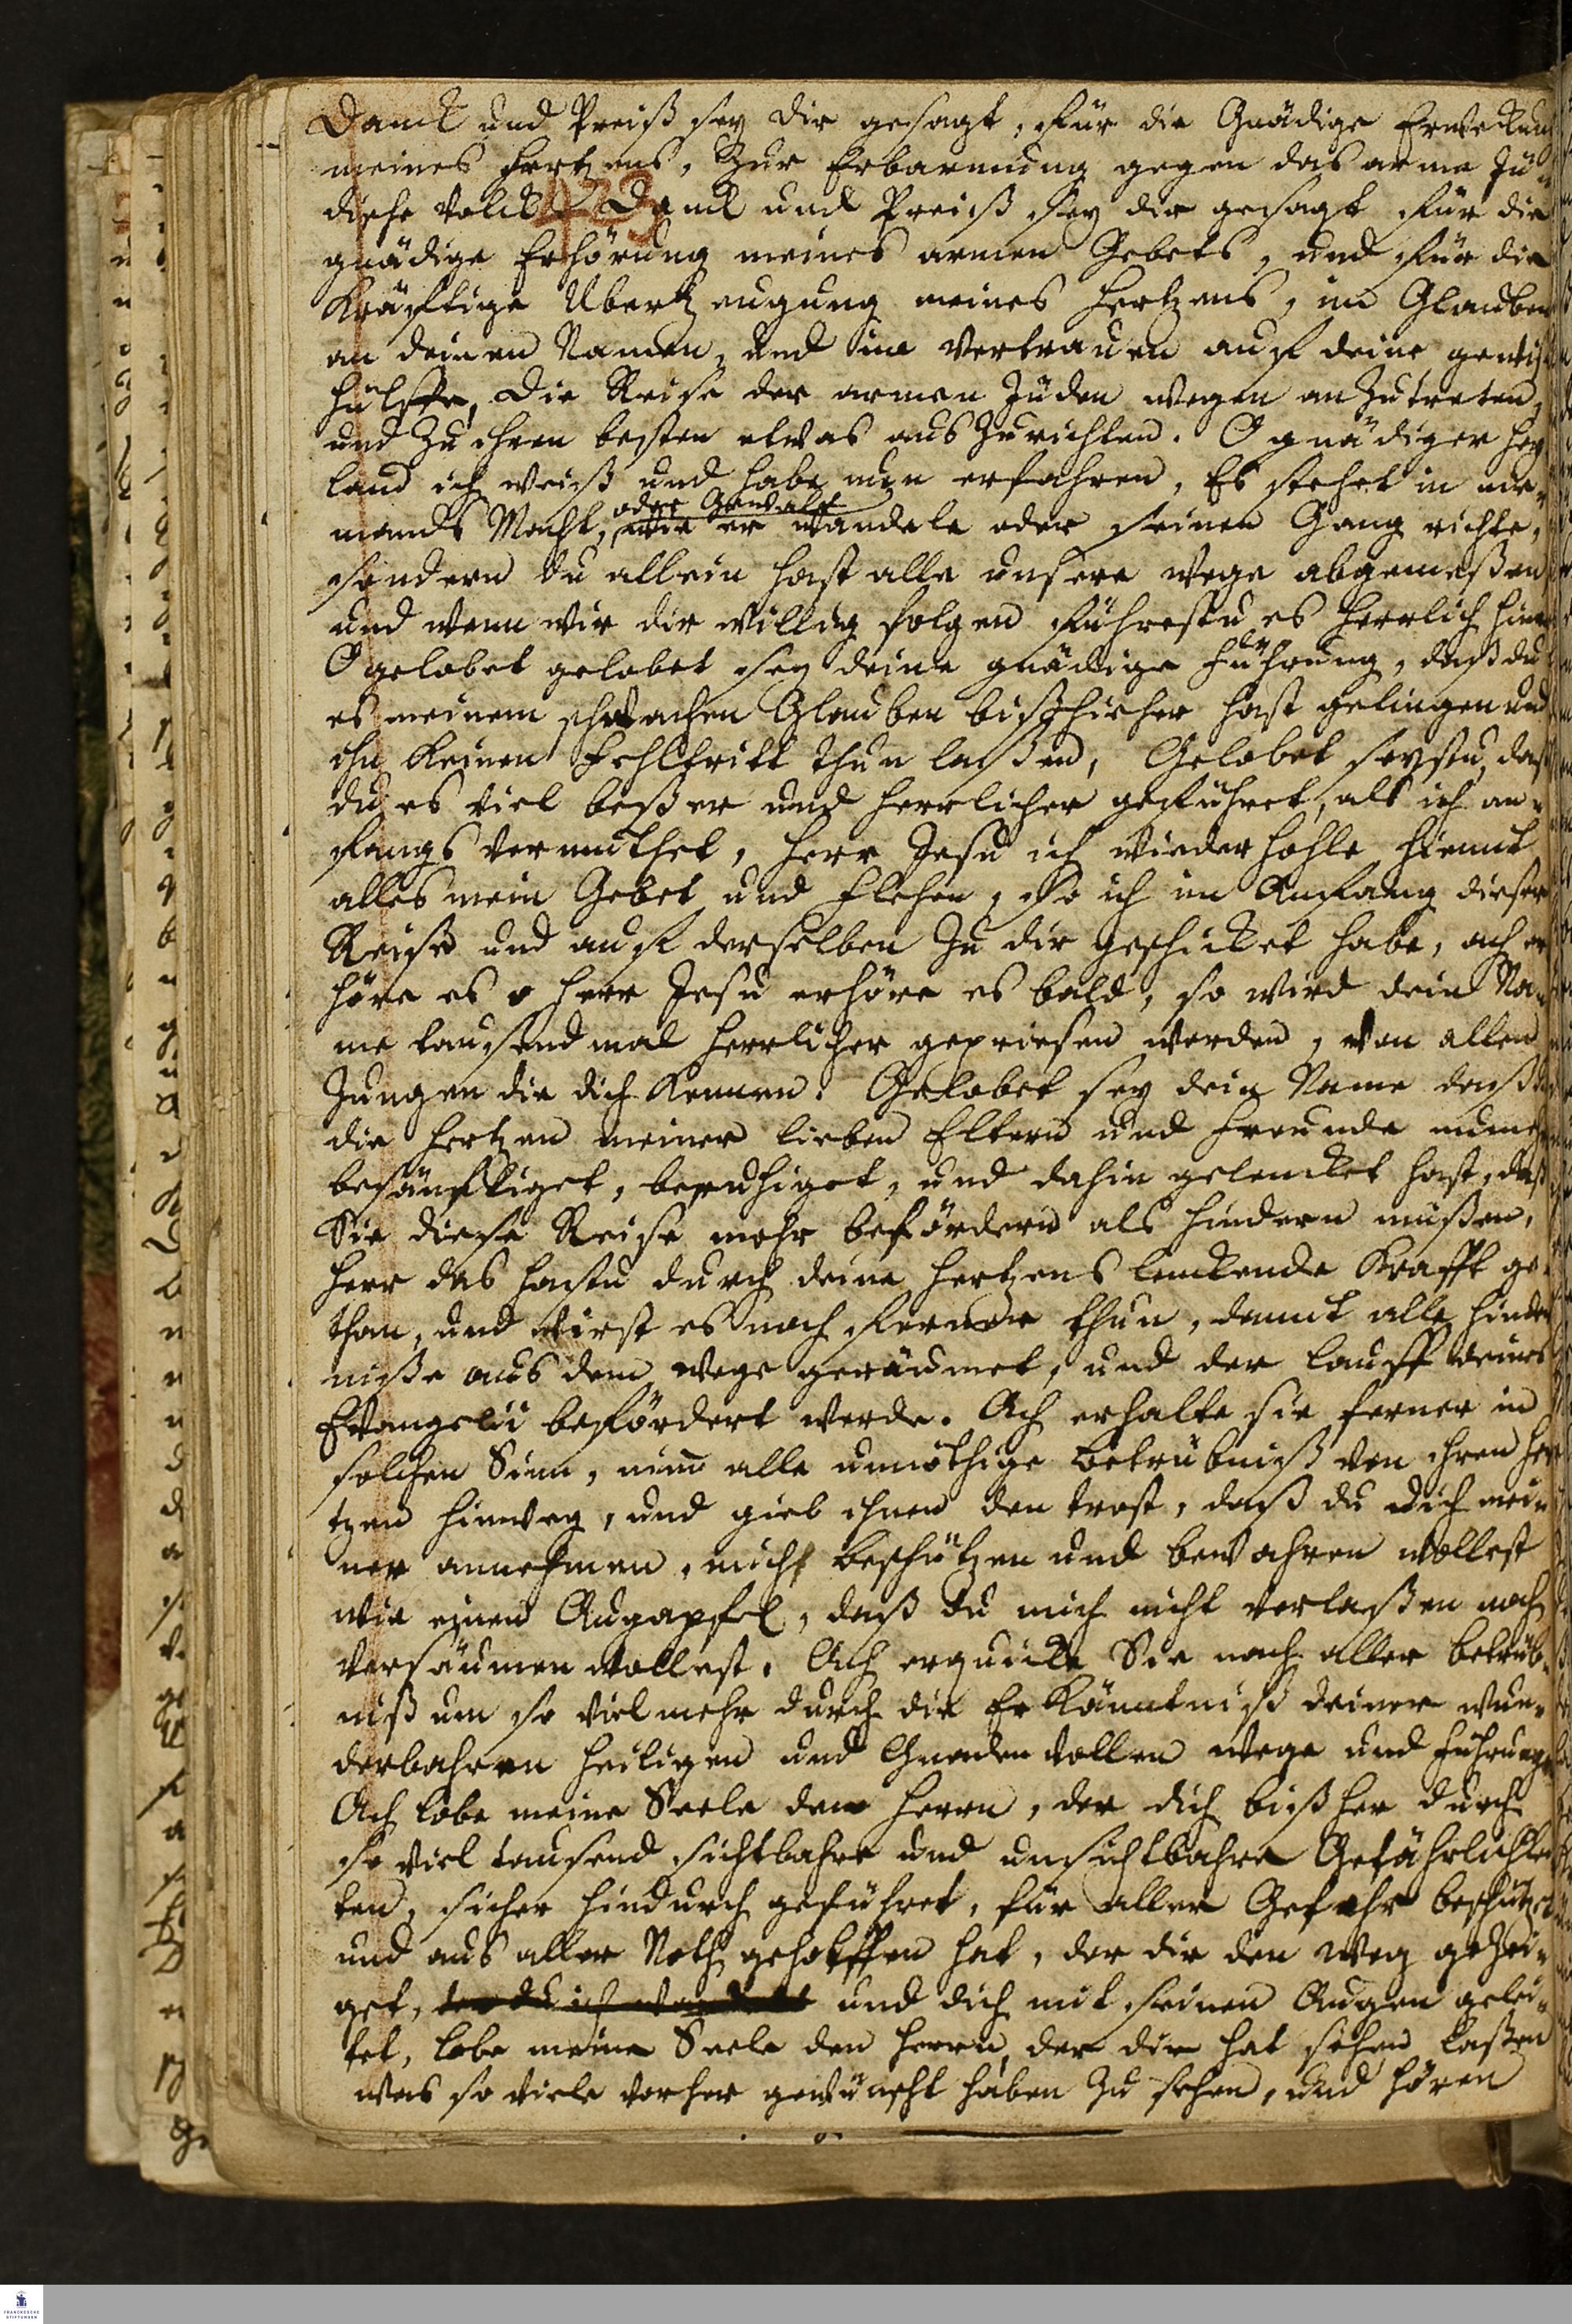 Danck und Preiß sey dir gesagt, für die Gnädige Erweckung
meines Hertzens, zur Erbarmung gegen das arme Jü-
dische Volck. Danck und Preiß sey dir gesagt für die
gnädige Erhörung meines armen Gebets, und für die
Kräfftige Ubertzeugung meines Hertzens, im Glauben
an deinen Namen, und im Vertrauen auf deine gewiße
Hülffe, die Reise der armen Jüden wegen anzutreten,
und zu ihren besten etwas auszurichten. O gnädiger Hey-
land ich weiß und habe nun erfahren, Es stehet in nie-
oder Gewalt
mands Macht, wie er wandele oder seinen Gang richte,
sondern du allein hast alle unsere Wege abgemeßen
und wenn wir dir willig folgen führestu es herrlich hin
O gelobet gelobet sey deine gnädige Führung, daß du
es meinem schwachen Glauben bißhieher hast gelingen und
ihn keinen Fehltritt thun laßen, Gelobet seystu, daß
du es viel beßer und herrlicher geführet, als ich an-
fangs vermuthet, Herr Jesu ich wiederhohle hiemit
alles mein Gebet und Flehen, so ich im Anfang dieser
Reise und auf derselben zu dir geschicket habe, ach er
höre es o Herr Jesu erhöre es bald, so wird dein Na-
me tausendmal herrlicher gepriesen werden, von allen
Zungen die dich kennen. Gelobet sey dein Name daß du
die Hertzen meiner lieben Eltern und Freunde nunmehr
besänfftiget, beruhiget, und dahin gelencket hast, daß
Sie diese Reise mehr befördern als hindern müßen,
Herr das hastu durch deine Hertzens lenckende Krafft ge-
than, und wirst es noch ferner thun, damit alle Hinder
niße aus dem Wege geräumet, und der Lauff deines
Evangelii befördert werde. Ach erhalte sie ferner in
solchen Sinn, nim̅ alle unnöthige Betrübniß von ihren Her
tzen hinweg, und gieb ihnen den Trost, daß du dich mei-
ner annehmen, mich beschützen und bewahren wollest
wie einen Augapfel, daß du mich nicht verlaßen noch
versäumen wollest. Ach erquicke Sie nach aller Betrüb-
niß um so viel mehr durch die Erkänntniß deiner wun-
derbahren heiligen und Gnadenvollen Wege und Führunge
Ach lobe meine Seele den Herrn, der dich bißher durch
so viel tausend sichtbahre und unsichtbahre Gefährlichkei
ten, sicher hindurch geführet, für aller Gefahr beschützet
und aus aller Noth geholffen hat, der dir den Weg gezei-
get, und dich mit seinen Augen gelei-
tet, lobe meine Seele den Herrn, der dir hat sehen laßen
was so viele vorher gewünscht haben zu sehen, und hören